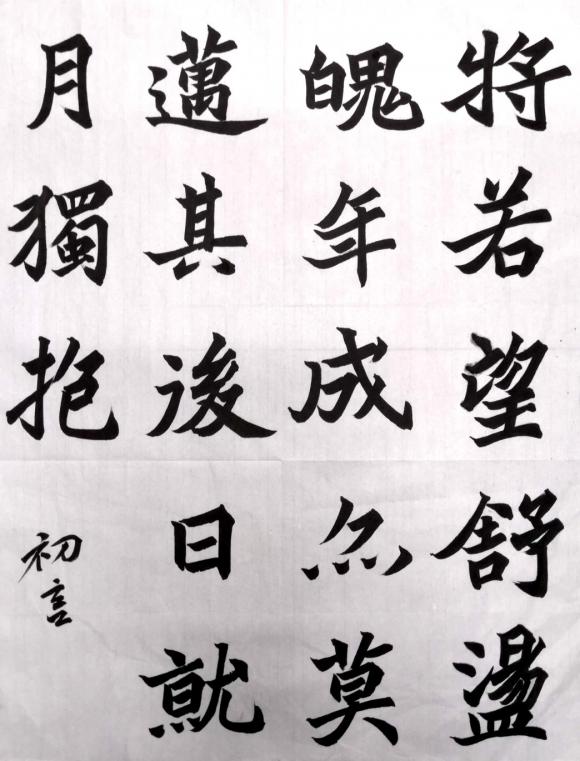 將若望舒盪
魄年成尒莫
邁其後日就
月獨抱
初言